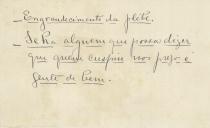 _Engrandecimento da plebe.
_Se ha alguem que possa dizer
que quem cuspiu nos é
gente de bem.